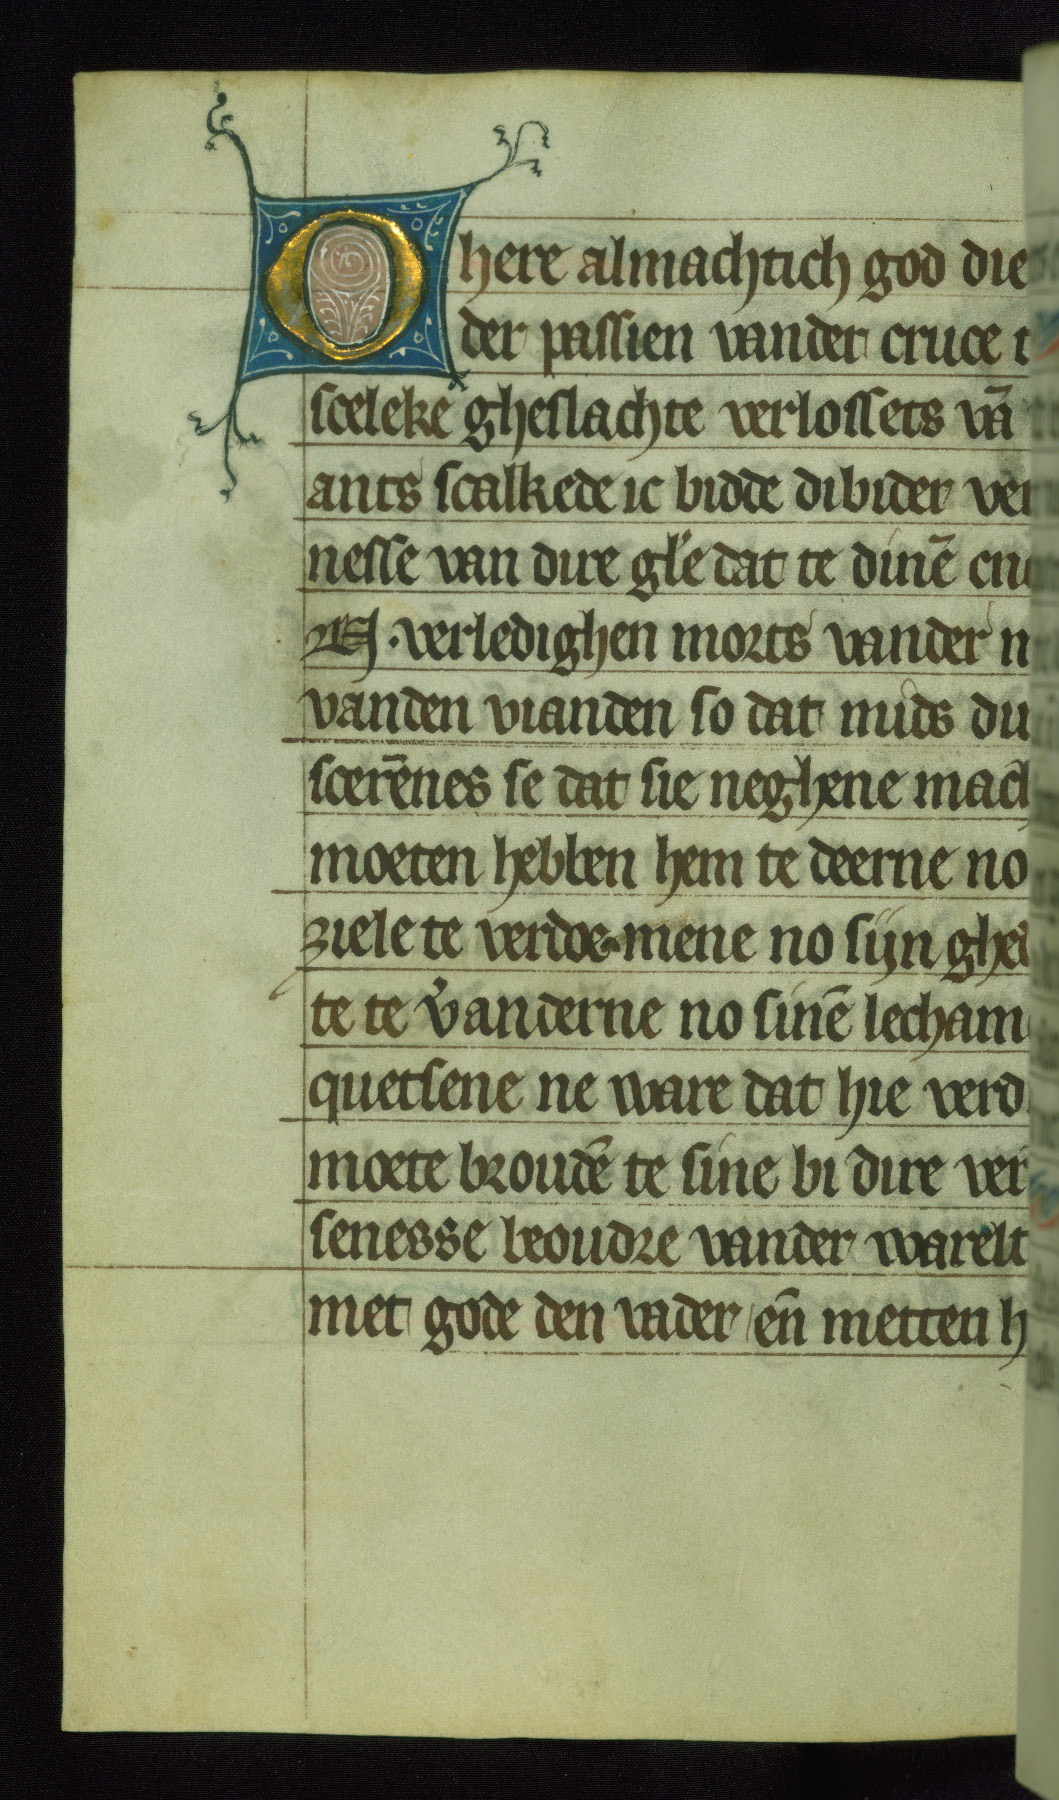 O here almachtich god die
der passien vander cruce
sceleke gheslachte verlossets vā
ants scalkede ic bidde di bider
nesse van dire gl'e dat te dinē
N · verledighen morts vander
vanden vianden so dat mids du
scerēnes se dat sie neghene
moeten hebben hem te deerne no
ziele te verdoe mene no sijn
te te v'anderne no sinē lecham
quetsene ne ware dat hie
moete broudē te sine bi dire
senesse beoudre vander warelt
met gode den vader eñ metten